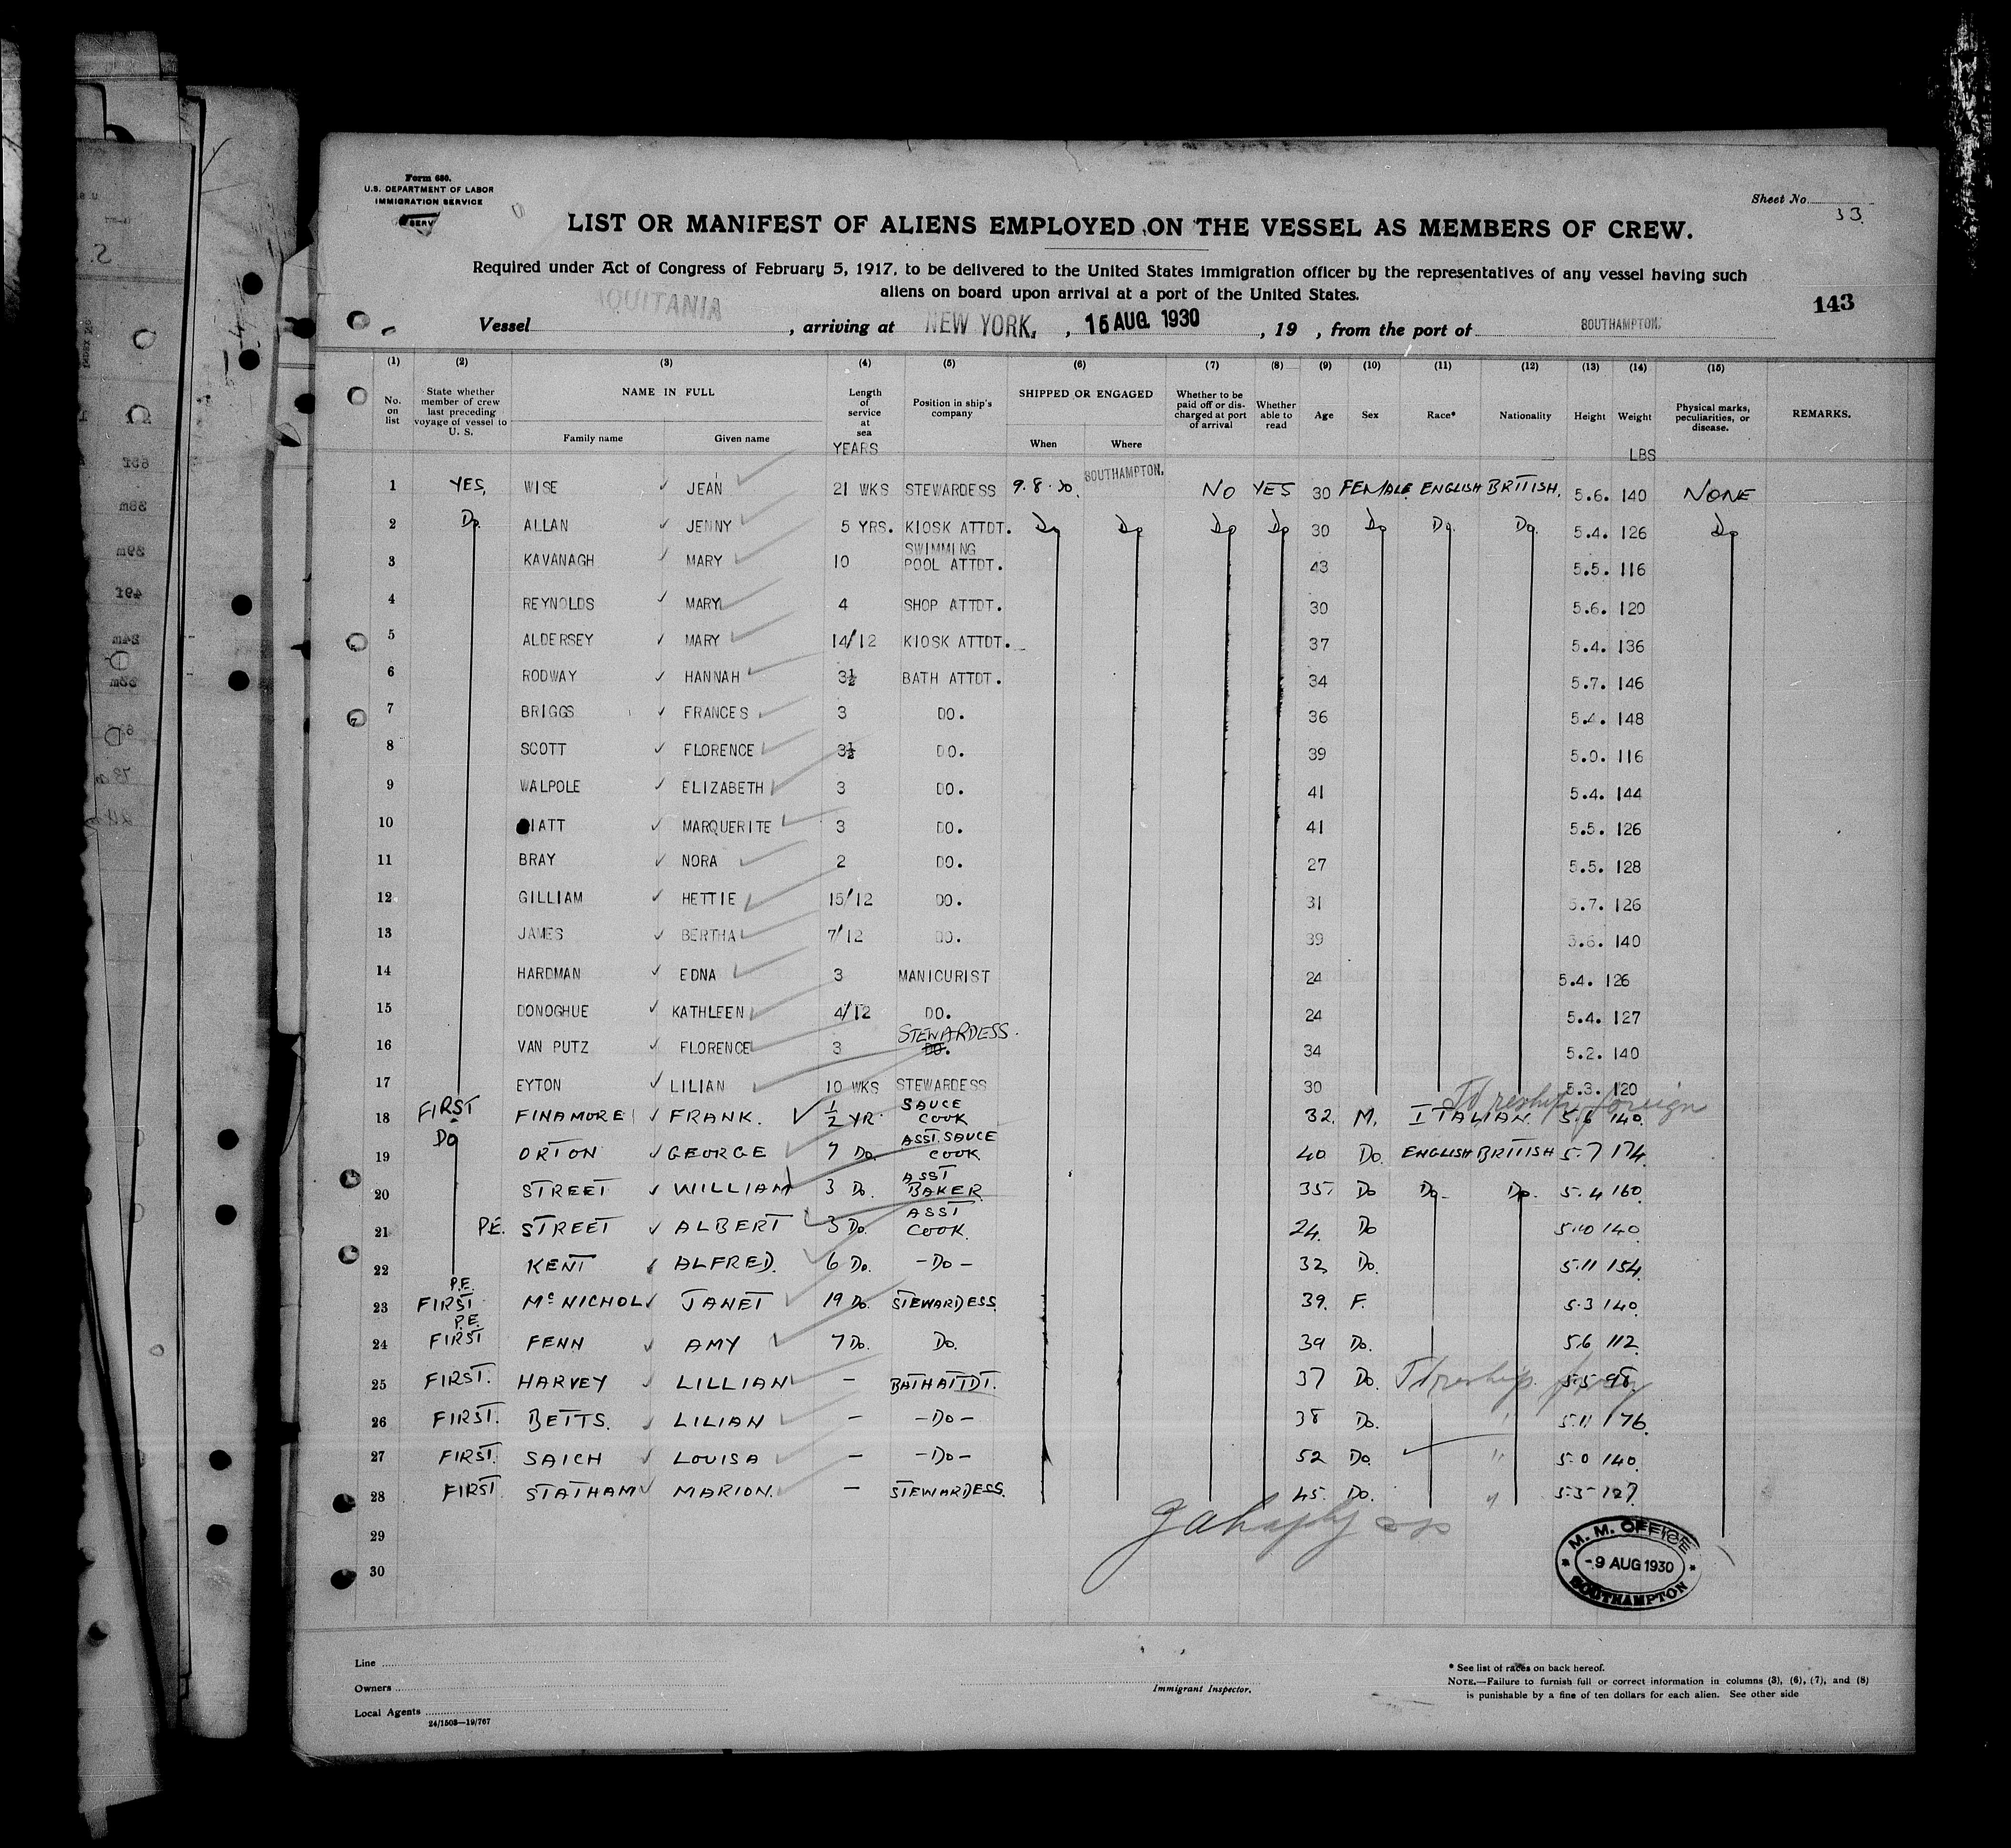 Form 680.
U.S. DEPARTMENT OF LABOR
IMMIGRATION SERVICE
Sheet No. 33.
LIST OR MANIFEST OF ALIENS EMPLOYED ON THE VESSEL AS MEMBERS OF CREW.
Required under Act of Congress of February 5, 1917, to be delivered to the United States immigration officer by the representatives of any vessel having such
aliens on board upon arrival at a port of the United States.
143
Vessel AQUITANIA, arriving at NEW YORK, , 15 AUG 1930, 19 , from the port of SOUTHAMPTON.
(1) (2) (3) (4) (5) (6) (7) (8) (9) (10) (11) (12) (13) (14) (15)
No. on list State whether member of crew last preceding voyage of vessel to U. S. NAME IN FULL Family name Given name Length of service at sea YEARS Position in ship's company SHIPPED OR ENGAGED When Where Whether to be paid off or discharged at port of arrival Whether able to read Age Sex Race* Nationality Height Weight LBS Physical marks, peculiarities, or disease. REMARKS.
1 YES, WISE JEAN 21 WKS STEWARDESS 9.8.30. SOUTHAMPTON. NO YES 30 FEMALE ENGLISH BRITISH. 5.6. 140 NONE
2 Do. ALLAN JENNY 5 YRS. KIOSK ATTDT. Do Do Do Do 30 Do Do. Do. 5.4. 126 Do
3 KAVANAGH MARY 10 SWIMMING POOL ATTDT. 43 5.5. 116
4 REYNOLDS MARY 4 SHOP ATTDT. 30 5.6. 120
5 ALDERSEY MARY 14/12 KIOSK ATTDT. 37 5.4. 136
6 RODWAY HANNAH 3½ BATH ATTDT. 34 5.7. 146
7 BRIGGS FRANCES 3 DO. 36 5.4. 148
8 SCOTT FLORENCE 3½ DO. 39 5.0. 116
9 WALPOLE ELIZABETH 3 DO. 41 5.4. 144
10 IATT MARQUERITE 3 DO. 41 5.5. 126
11 BRAY NORA 2 DO. 27 5.5. 128
12 GILLIAM HETTIE 15/12 DO. 31 5.7. 126
13 JAMES BERTHA 7/12 DO. 39 5.6. 140
14 HARDMAN EDNA 3 MANICURIST 24 5.4. 126
15 DONOGHUE KATHLEEN 4/12 DO. 24 5.4. 127
16 VAN PUTZ FLORENCE 3 STEWARDESS. DO. 34 5.2. 140
17 EYTON LILIAN 10 WKS STEWARDESS 30 5.3. 120
18 FIRST FINAMORE FRANK. ½ YR. SAUCE COOK 32. M. ITALIAN. 5.6 140. foreign
19 Do ORTON GEORGE 7 Do. ASST. SAUCE COOK 40 Do. ENGLISH BRITISH 5.7 174.
20 STREET WILLIAM 3 Do. ASST BAKER 35. Do Do. Do. 5.4 160.
21 P.E. STREET ALBERT 3 Do. ASST COOK. 24. Do 5.10 140.
22 KENT ALFRED. 6 Do. -Do- 32 Do. 5.11 154.
23 P.E. FIRST McNICHOL JANET 19 Do. STEWARDESS. 39. F. 5.3 140.
24 P.E. FIRST FENN AMY 7 Do. Do. 39 Do. 5.6 112
25 FIRST. HARVEY LILLIAN - BATH ATTDT. 37 Do. 5.5 98.
26 FIRST. BETTS. LILIAN - -Do- 38 Do. " 5.11 176.
27 FIRST. SAICH LOUISA - -Do- 52 Do. " 5.0 140.
28 FIRST. STATHAM MARION. - STEWARDESS. 45. Do. " 5.5 127.
29
30
M. M. OFFICE
-9 AUG 1930
SOUTHAMPTON
Line
Owners
Local Agents
24/1508—19/767
Immigrant Inspector.
* See list of races on back hereof.
NOTE.—Failure to furnish full or correct information in columns (3), (6), (7), and (8)
is punishable by a fine of ten dollars for each alien. See other side